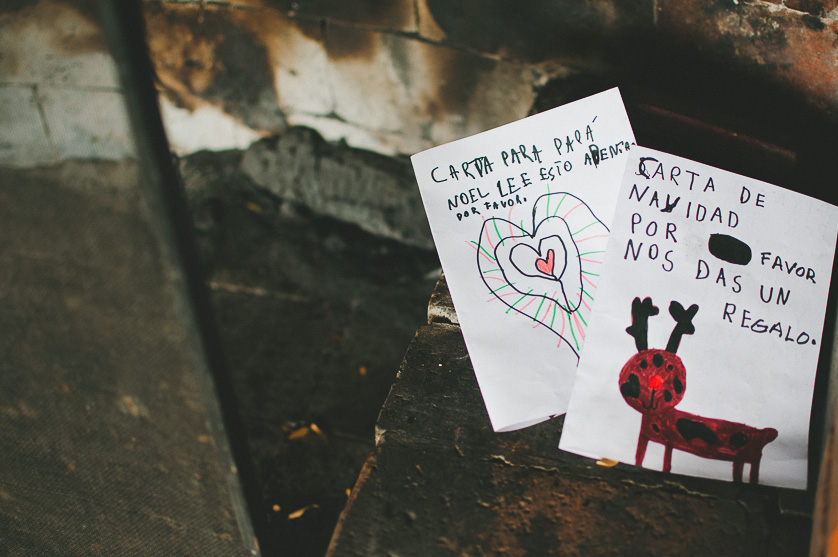 CARTA PARA PAPÁ
NOEL LEE ESTO ADENTRO
POR FAVOR.
CARTA DE
NAVIDAD
POR FAVOR
NOS DAS UN
REGALO.